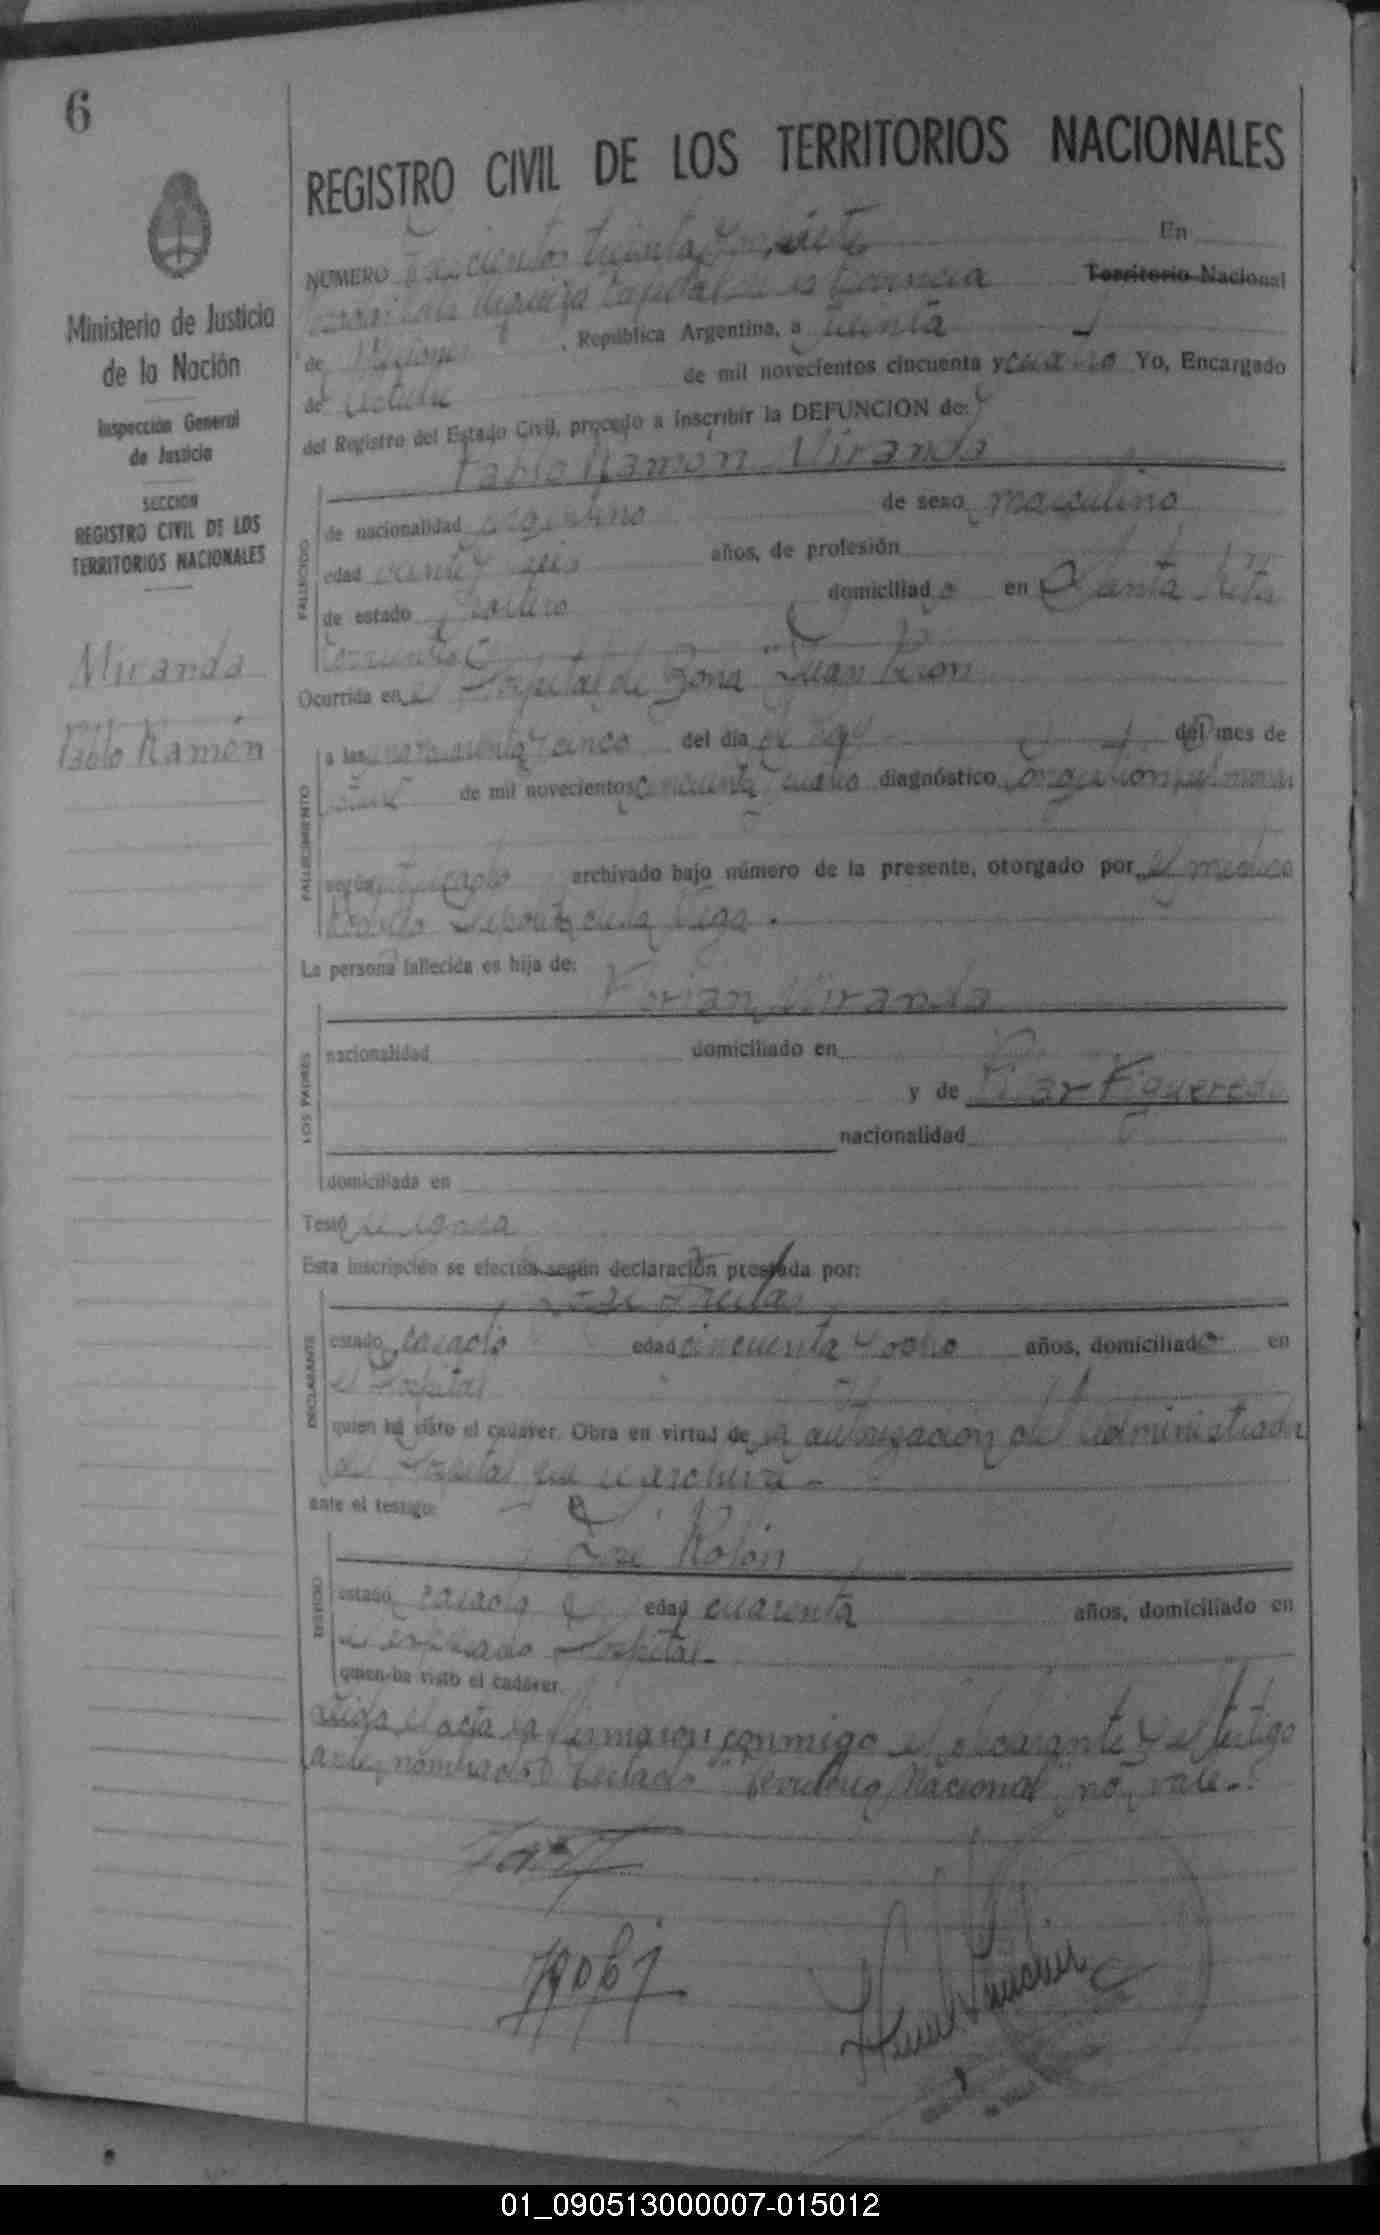 6
REGISTRO CIVIL DE LOS TERRITORIOS NACIONALES
Ministerio de Justicia
de la Nación
Inspección General
de Justicia
SECCION
REGISTRO CIVIL DE LOS
TERRITORIOS NACIONALES
Miranda
Pablo Ramón
NÚMERO Trescientos treinta y siete En
Capital de la Provincia Territorio Nacional
de Misiones, República Argentina, a treinta
de Octubre de mil novecientos cincuenta y cuatro Yo, Encargado
del Registro del Estado Civil, procedo a inscribir la DEFUNCION de:
Pablo Ramón Miranda
FALLECIDO
de nacionalidad argentino de sexo masculino
edad veinte y seis años, de profesión
de estado soltero domiciliado en Santa Rita
Corrientes
Ocurrida en el Hospital de Zona "Juan Perón
FALLECIMIENTO
a las y cinco del día de hoy del mes de
de mil novecientos cincuenta y cuatro diagnóstico congestion pulmonar
según certificado archivado bajo número de la presente, otorgado por el médico
de la Vega.
La persona fallecida es hija de:
Miranda
LOS PADRES
nacionalidad domiciliado en
y de Figueredo
nacionalidad
domiciliada en
Testó se ignora
Esta inscripción se efectúa según declaración prestada por:
José Freitas
DECLARANTE
estado casado edad cincuenta y ocho años, domiciliado en
el Hospital
quien ha visto el cadáver. Obra en virtud de la autorización del administrador
del Hospital que se archiva -
ante el testigo:
José Rolón
TESTIGO
estado casado edad cuarenta años, domiciliado en
el expresado Hospital -
quien ha visto el cadáver.
Leída el acta la firmaron conmigo el declarante y el testigo
antes nombrados Testado "Territorio Nacional" no vale -
01_090513000007-015012